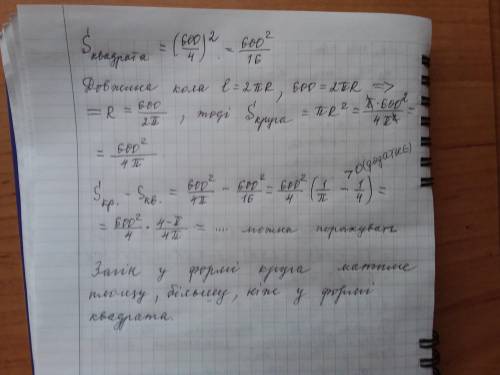 S квадрата = (600/4)² = 600²/16
Довжина кола l = 2πR, 600 = 2πR =>
= R = 600/2π, тоді S круга = πR² = π·600²/4π² =
= 600²/4π
>0 (додатнє)
S кр. - S кв. = 600²/4π - 600²/16 = 600²/4 (1/π - 1/4) =
= 600²/4 · 4-π/4π = .... можна порахувать
Загін у формі круга матиме
площу, більшу, ніж у формі
квадрата.